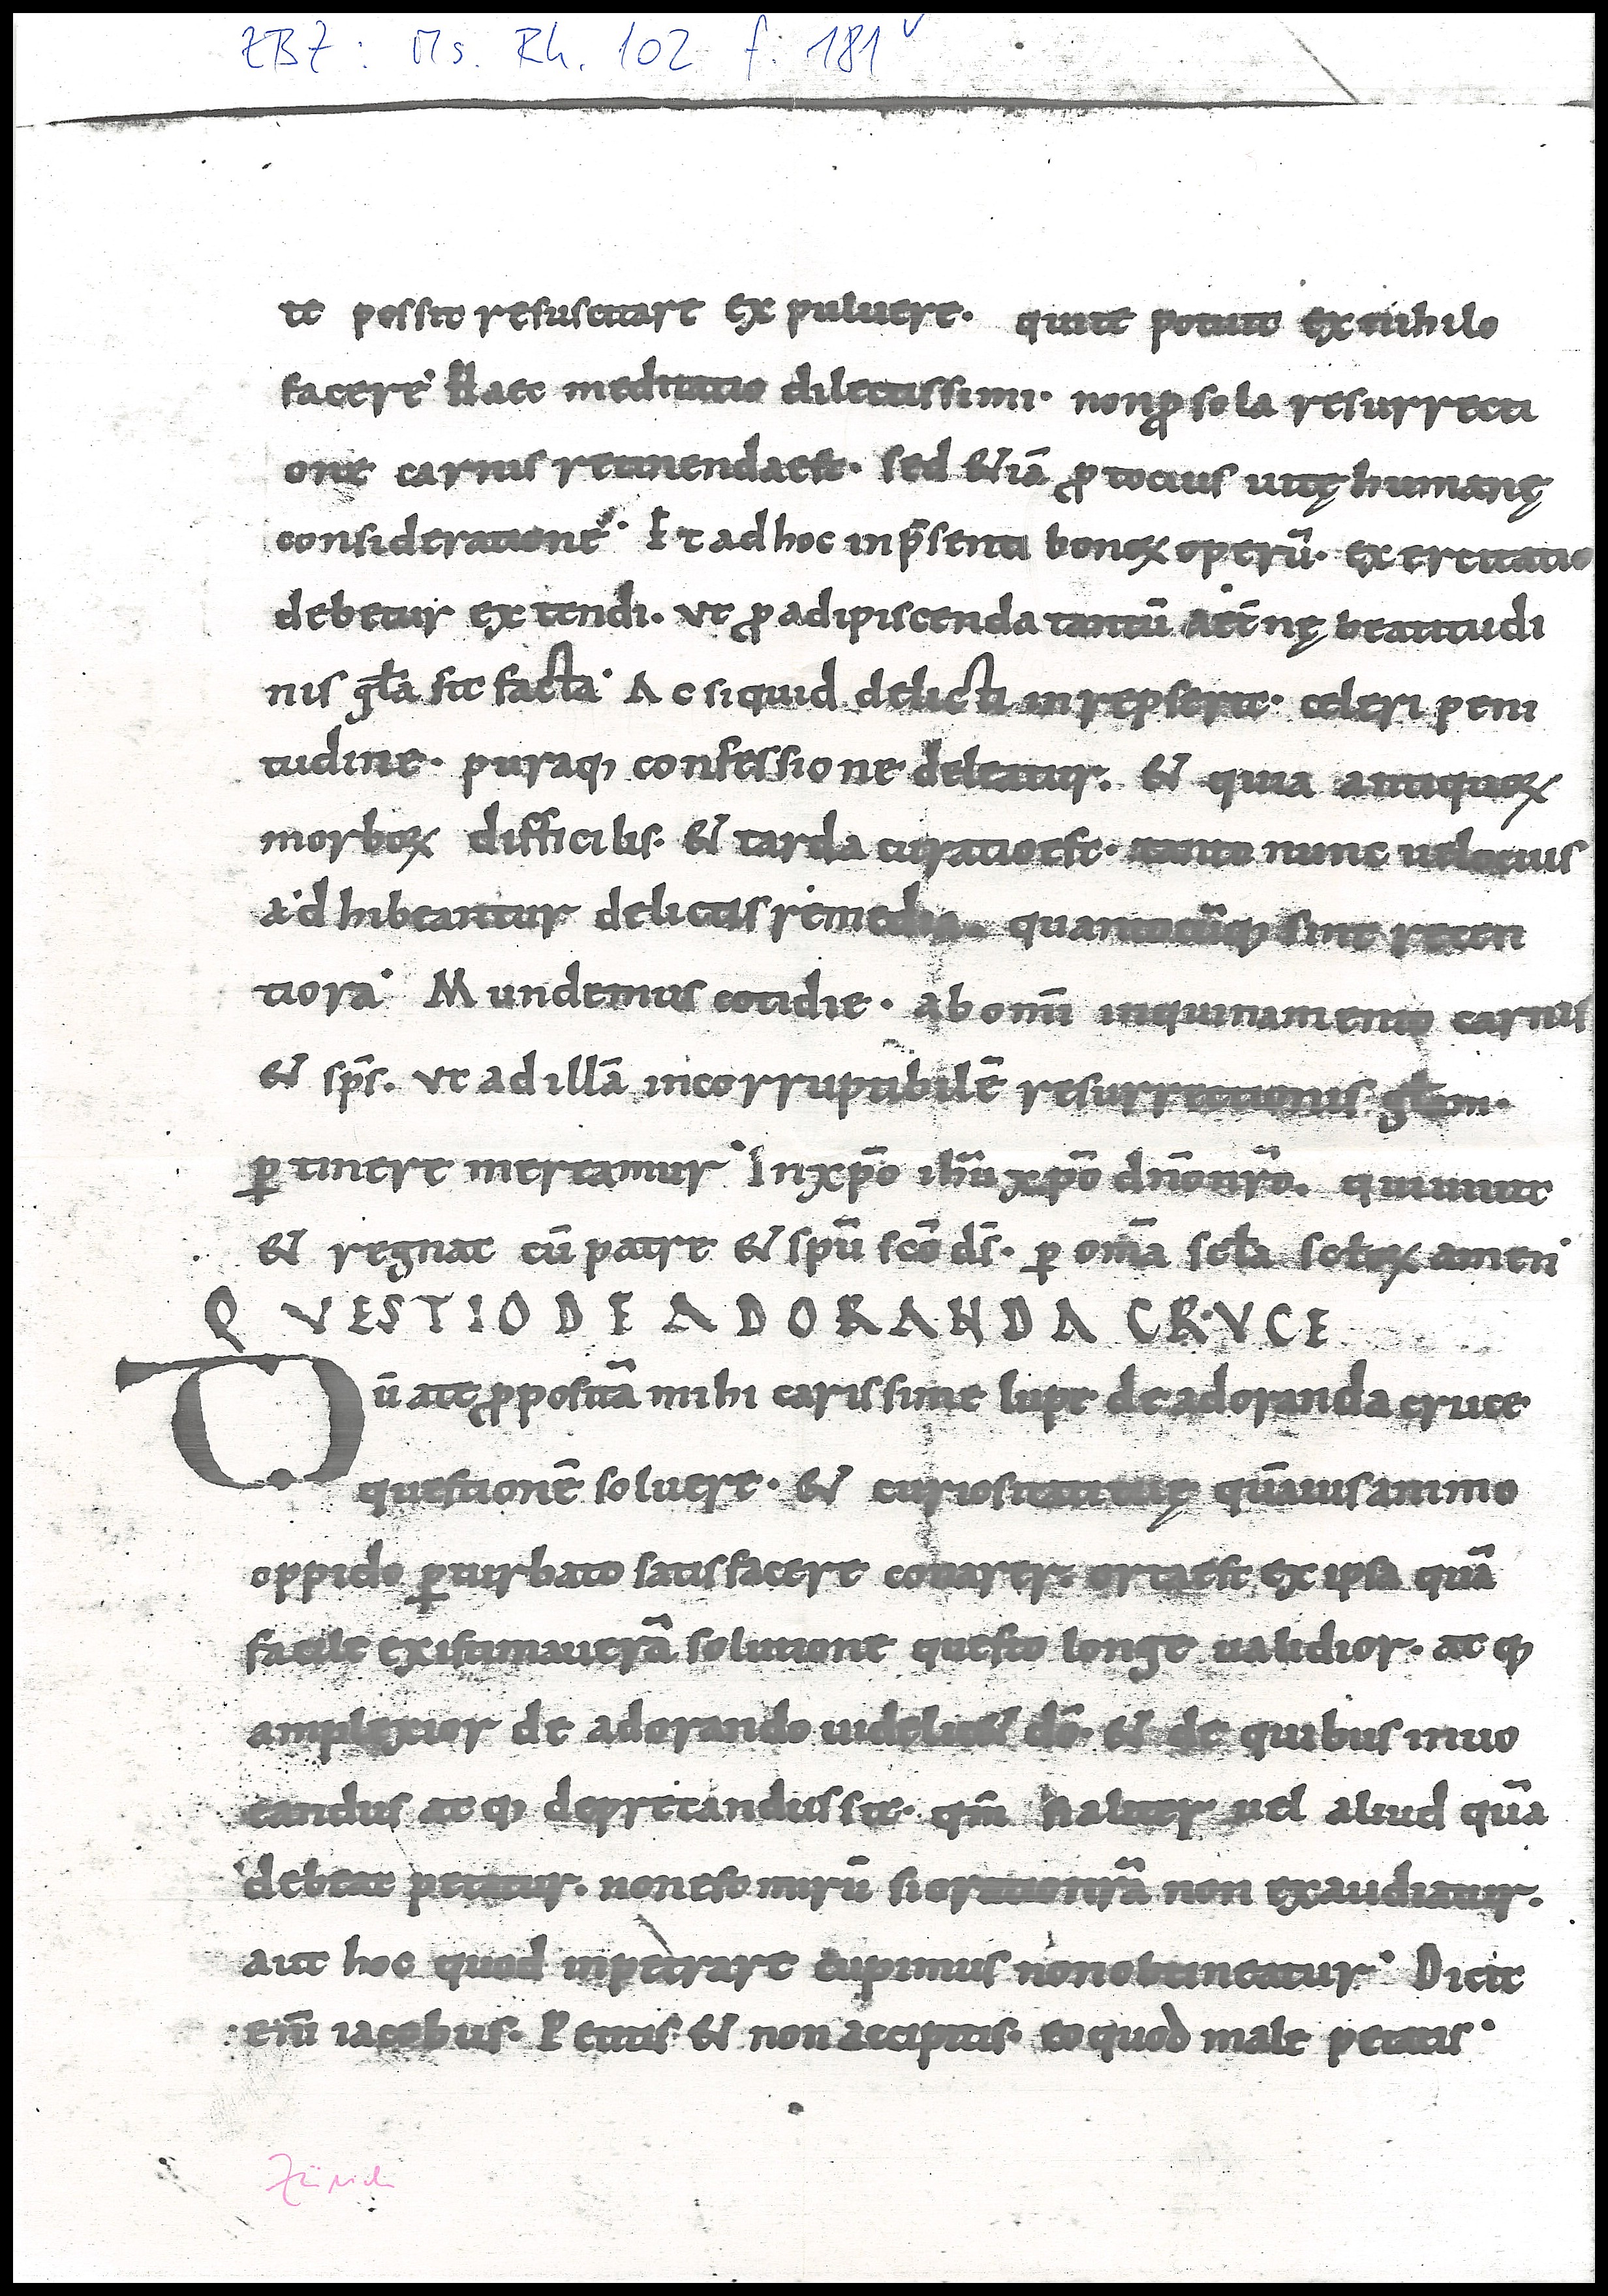 ZBZ: Ms. Rh. 102 f. 181v
te possit resuscitare ex puluere. quite potuit exnihilo
facere· Haec meditatio dilectissimi· non ꝓ sola resurrecti
one carnis retinendaest· sed &iā ꝓ tocius uitę humanę
consideratione· Et adhoc inp̄senti bonoꝝ operū· exercitatio
debetur extendi. vt ꝓ adipiscenda tantū aet̄nę beatitudi
nis gl̄a sit facta· Ac siquid delicti inrepserit· celeri peni
tudine· puraq; confessione deleatur. & quia antiquoꝝ
morboꝝ difficilis· & tarda curatioest· tanto nunc uelocius
adhibeantur delictis remedia. quantocūq; sint recen
tiora· Mundemus cotidie· abom̄i inquinamento carnis
& sp̄s. vt adillā incorruptibilē resurrectionis gl̄am·
ꝑtinere mereamur· Inxp̄o ih̄u xp̄o dn̄o nr̄o. quiuiuit
& regnat cū patre & sp̄u sc̄o ds̄· ꝑ om̄a scl̄a scl̄oꝝ amen·
QVESTIO DE ADORANDA CRVCE
Dū atę ꝓpositā mihi carissime lupe deadoranda cruce
questionē soluere· & curiositati tuę quāuis animo
oppido ꝑturbato satisfacere conarer· ortaest ex ipsa quā
facile existimauerā solutione questio longe ualidior· atq;
amplexior de adorando uidelic& dō· & de quibus inuo
candus atq; deprecandus sit· qm̄ n̄ aliter uel aliud quā
debeat petatur· nonest mirū si oratio nr̄a non exaudiatur.
aut hoc quod inpetrare cupimus nonobtineatur· Dicit
em̄ iacobus· Petitis & non accipitis· eoquod male petatis·
Zürich